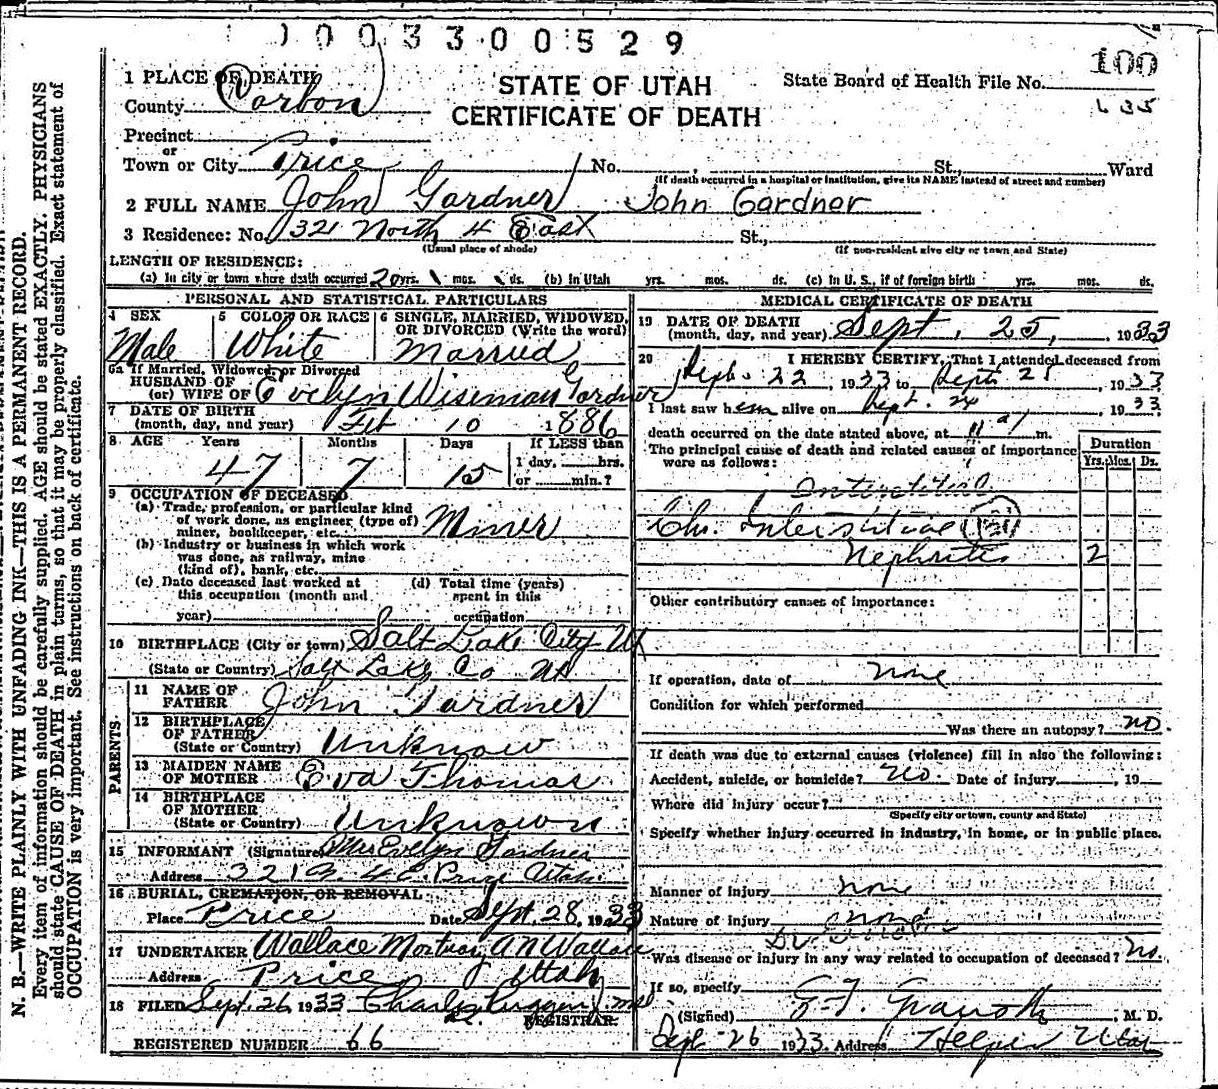 1 0 0 3 3 0 0 5 2 9
100
635
STATE OF UTAH
CERTIFICATE OF DEATH
State Board of Health File No.
1 PLACE OF DEATH
County Carbon
Precinct
or
Town or City Price No. , St., Ward
(If death occurred in a hospital or institution, give its NAME instead of street and number)
2 FULL NAME John Gardner John Gardner
3 Residence: No. 321 North 4 East St.,
(Usual place of abode) (If non-resident give city or town and State)
LENGTH OF RESIDENCE:
(a) In city or town where death occurred 20 yrs. mos. ds. (b) in Utah yrs. mos. ds. (c) in U. S., if of foreign birth yrs. mos. ds.
PERSONAL AND STATISTICAL PARTICULARS
4 SEX 5 COLOR OR RACE 6 SINGLE, MARRIED, WIDOWED, OR DIVORCED (Write the word)
Male White Married
6a If Married, Widowed, or Divorced
HUSBAND OF
(or) WIFE OF Evelyn Wiseman Gardner
7 DATE OF BIRTH
(month, day, and year) Feb 10 1886
8 AGE Years Months Days If LESS than
1 day, hrs.
or min.?
47 7 15
9 OCCUPATION OF DECEASED
(a) Trade, profession, or particular kind
of work done, as engineer (type of)
miner, bookkeeper, etc. Miner
(b) Industry or business in which work
was done, as railway, mine
(kind of), bank, etc.
(c) Date deceased last worked at (d) Total time (years)
this occupation (month and spent in this
year) occupation
10 BIRTHPLACE (City or town) Salt Lake City Ut
(State or Country) Salt Lake Co Ut
PARENTS
11 NAME OF
FATHER John Gardner
12 BIRTHPLACE
OF FATHER
(State or Country) Unknow
13 MAIDEN NAME
OF MOTHER Eva Thomas
14 BIRTHPLACE
OF MOTHER
(State or Country) Unknown
15 INFORMANT (Signature) Mrs Evelyn Gardner
Address 321 N. 4 E. Price Utah
16 BURIAL, CREMATION, OR REMOVAL
Place Price Date Sept. 28, 1933
17 UNDERTAKER Wallace Mortuary A N Wallace
Address Price Utah
18 FILED Sept. 26 1933 Charles Ruggeri MD
REGISTRAR
REGISTERED NUMBER 66
MEDICAL CERTIFICATE OF DEATH
19 DATE OF DEATH
(month, day, and year) Sept, 25, 1933
20 I HEREBY CERTIFY, That I attended deceased from
Sept. 22, 1933 to Sept. 25, 1933
I last saw him alive on Sept. 24, 1933
death occurred on the date stated above, at 11 a m.
Duration
Yrs. Mos. Ds.
The principal cause of death and related causes of importance
were as follows:
Interstitial
Chr. Interstitial (131)
Nephritis 2
Other contributory causes of importance:
If operation, date of none
Condition for which performed
Was there an autopsy? no.
If death was due to external causes (violence) fill in also the following:
Accident, suicide, or homicide? No. Date of injury , 19
Where did injury occur?
(Specify city or town, county and State)
Specify whether injury occurred in industry, in home, or in public place.
Manner of injury none
Nature of injury none
Was disease or injury in any way related to occupation of deceased? No.
If so, specify
(Signed) , M. D.
Sept. 26 1933. Address Helper Utah
N. B.—WRITE PLAINLY WITH UNFADING INK—THIS IS A PERMANENT RECORD.
Every item of information should be carefully supplied. AGE should be stated EXACTLY. PHYSICIANS
should state CAUSE OF DEATH in plain terms, so that it may be properly classified. Exact statement of
OCCUPATION is very important. See instructions on back of certificate.